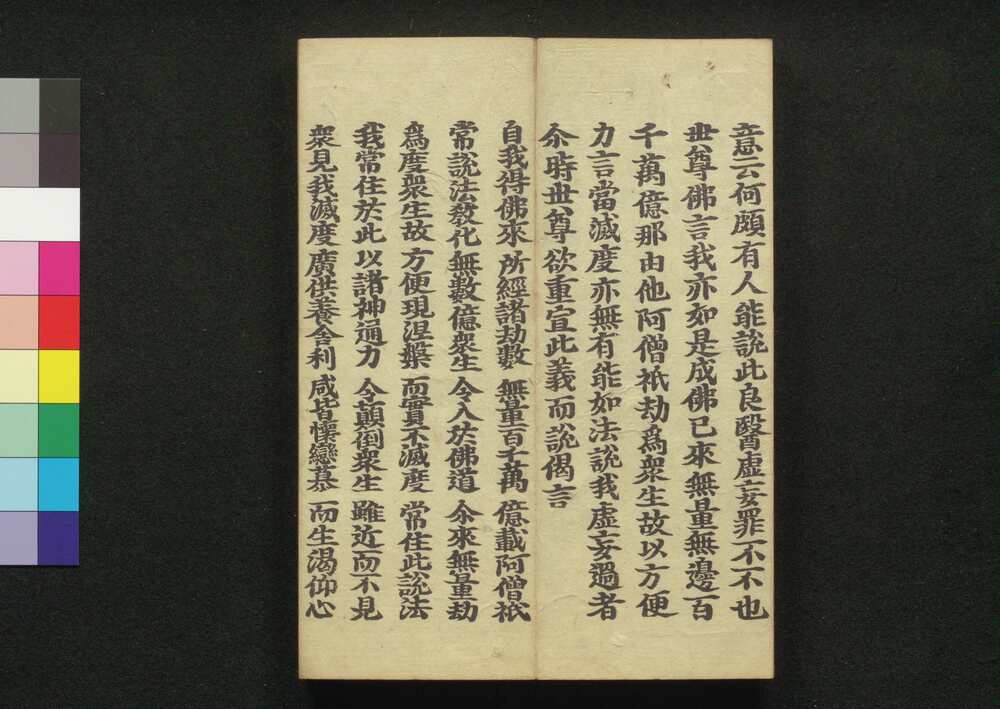 意云何頗有人能説此良醫虛妄罪不不也
世尊佛言我亦如是成佛已來無量無邊百
千萬億那由他阿僧祇劫爲衆生故以方便
力言當滅度亦無有能如法説我虛妄過者
尒時世尊欲重宣此義而説偈言
自我得佛來 所經諸劫數 無量百千萬 億載阿僧祇
常説法教化 無數億衆生 令入於佛道 尒來無量劫
爲度衆生故 方便現涅槃 而實不滅度 常住此説法
我常住於此 以諸神通力 令顛倒衆生 雖近而不見
衆見我滅度 廣供養舍利 咸皆懷戀慕 而生渴仰心